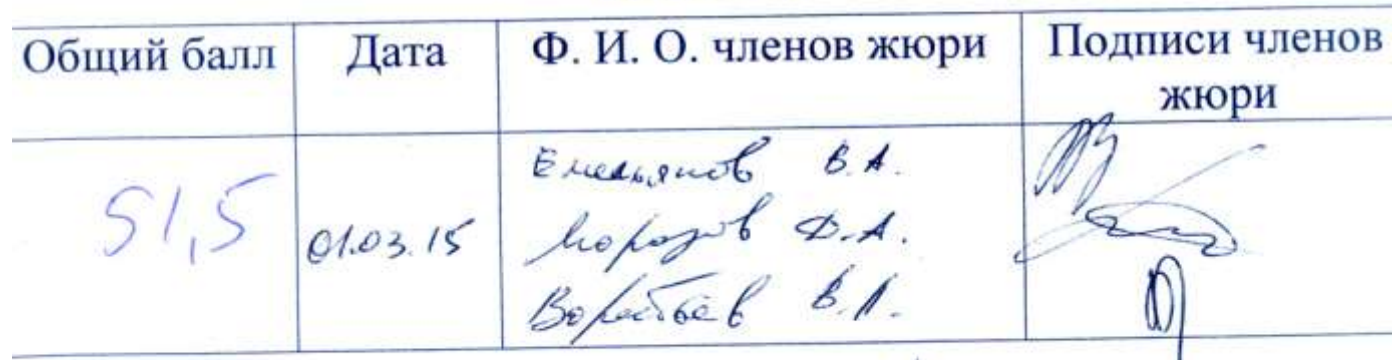 Общий балл Дата Ф. И. О. членов жюри Подписи членов
жюри
51,5 01.03.15 Емельянов В.А.
Морозов Д.А.
Воробьев В.Л.